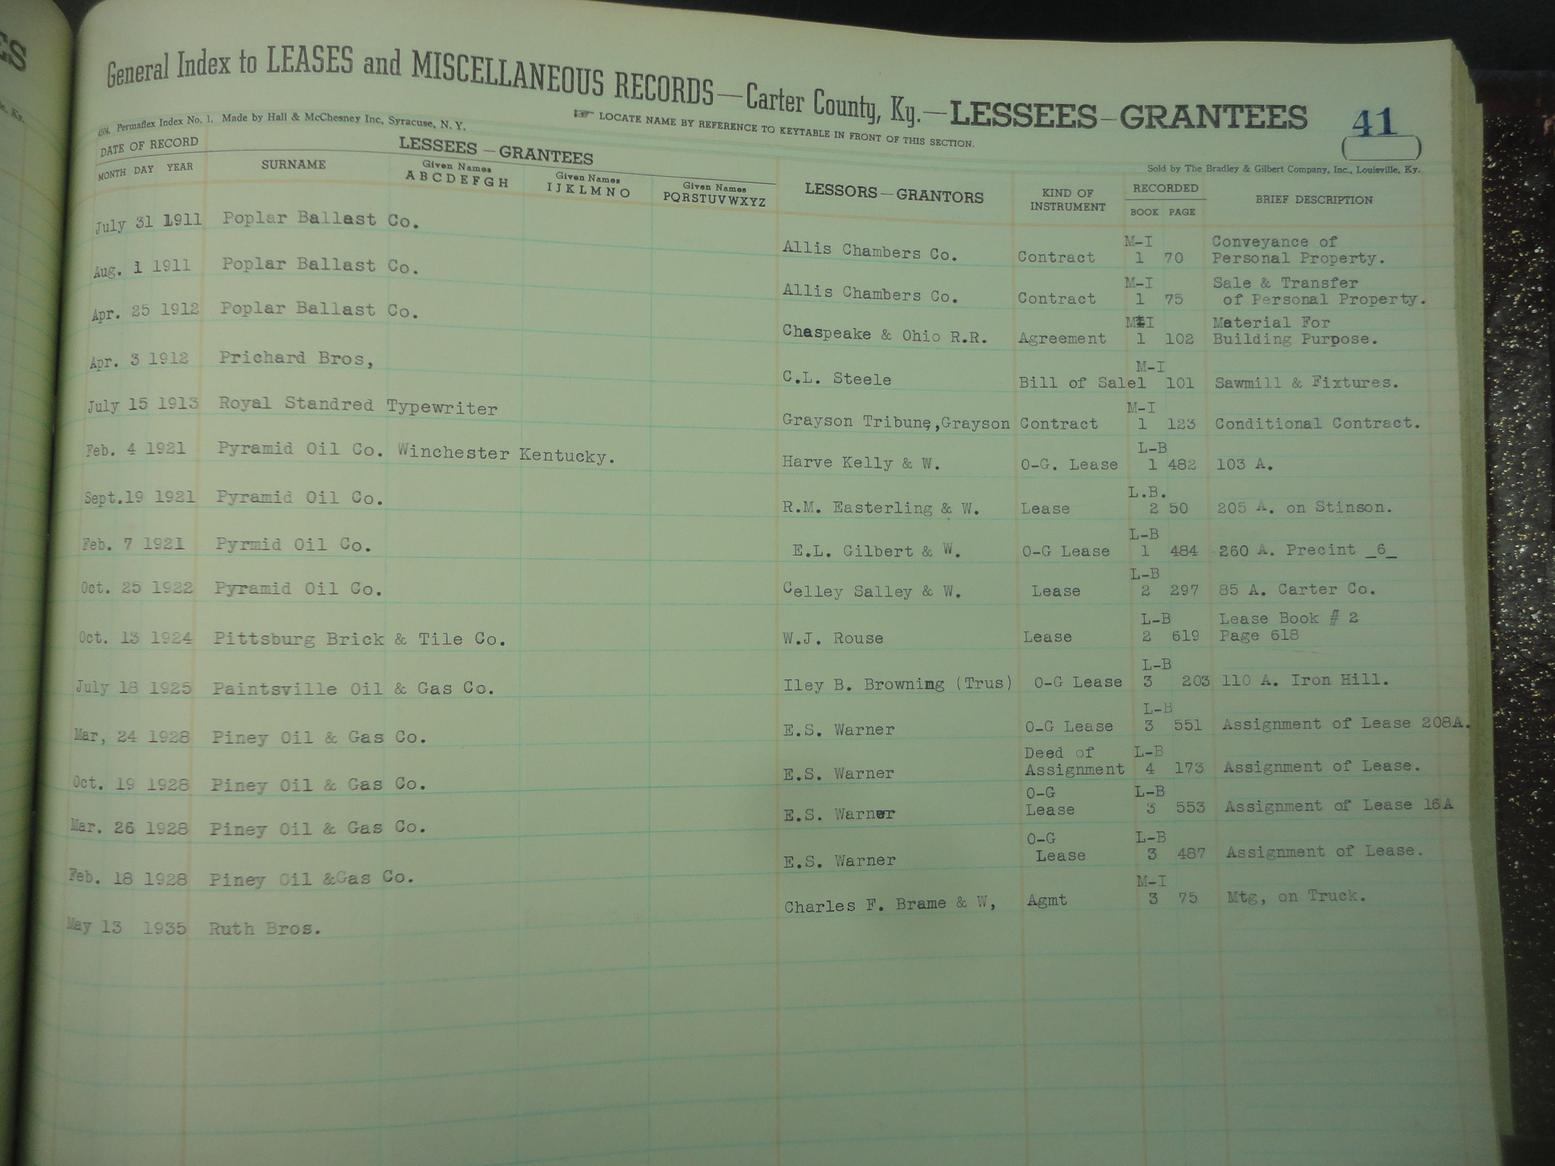 ES
General Index to LEASES and MISCELLANEOUS RECORDS—Carter County, Ky.—LESSEES–GRANTEES 41
Permaflex Index No. 1. Made by Hall & McChesney Inc, Syracuse, N. Y. LOCATE NAME BY REFERENCE TO KEYTABLE IN FRONT OF THIS SECTION.
Sold by The Bradley & Gilbert Company, Inc., Louisville, Ky.
DATE OF RECORD LESSEES – GRANTEES LESSORS–GRANTORS KIND OF INSTRUMENT RECORDED BRIEF DESCRIPTION
MONTH DAY YEAR SURNAME Given Names A B C D E F G H Given Names I J K L M N O Given Names PQRSTUVWXYZ BOOK PAGE
July 31 1911 Poplar Ballast Co. Allis Chambers Co. Contract M-I 1 70 Conveyance of Personal Property.
Aug. 1 1911 Poplar Ballast Co. Allis Chambers Co. Contract M-I 1 75 Sale & Transfer of Personal Property.
Apr. 25 1912 Poplar Ballast Co. Chaspeake & Ohio R.R. Agreement M-I 1 102 Material For Building Purpose.
Apr. 3 1912 Prichard Bros, C.L. Steele Bill of Sale M-I 1 101 Sawmill & Fixtures.
July 15 1913 Royal Standred Typewriter Grayson Tribune,Grayson Contract M-I 1 123 Conditional Contract.
Feb. 4 1921 Pyramid Oil Co. Winchester Kentucky. Harve Kelly & W. O-G. Lease L-B 1 482 103 A.
Sept.19 1921 Pyramid Oil Co. R.M. Easterling & W. Lease L.B. 2 50 205 A. on Stinson.
Feb. 7 1921 Pyrmid Oil Co. E.L. Gilbert & W. O-G Lease L-B 1 484 260 A. Precint _6_
Oct. 25 1922 Pyramid Oil Co. Celley Salley & W. Lease L-B 2 297 85 A. Carter Co.
Oct. 13 1924 Pittsburg Brick & Tile Co. W.J. Rouse Lease L-B 2 619 Lease Book # 2 Page 618
July 18 1925 Paintsville Oil & Gas Co. Iley B. Browning (Trus) O-G Lease L-B 3 203 110 A. Iron Hill.
Mar, 24 1928 Piney Oil & Gas Co. E.S. Warner O-G Lease L-B 3 551 Assignment of Lease 208A.
Oct. 19 1928 Piney Oil & Gas Co. E.S. Warner Deed of Assignment L-B 4 173 Assignment of Lease.
Mar. 26 1928 Piney Oil & Gas Co. E.S. Warner O-G Lease L-B 3 553 Assignment of Lease 16A
Feb. 18 1928 Piney Oil &Gas Co. E.S. Warner O-G Lease L-B 3 487 Assignment of Lease.
May 13 1935 Ruth Bros. Charles F. Brame & W, Agmt M-I 3 75 Mtg, on Truck.